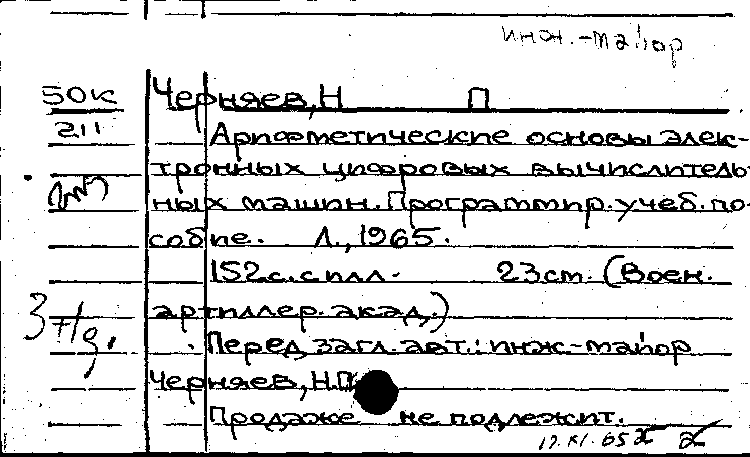 инж.-майор
50к Черняев, Н П
211 Арифметические основы элек-
тронных цифровых вычислитель-
ных машин. Программир. учеб. по-
собие. Л., 1965.
152 с. с илл. 23 см. (Воен.
артиллер. акад.)
Перед загл. авт.: инж-майор
Черняев, Н.П
Продаже не подлежит.
17.XI.65